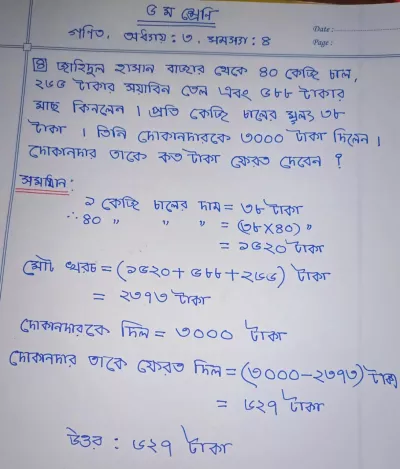 ৫ ম শ্রেণি
গণিত, অধ্যায় : ৩, সমস্যা : ৪
Date :
Page :
৪ জাহিদুল হাসান বাজার থেকে ৪০ কেজি চাল,
২৬৫ টাকার সয়াবিন তেল এবং ৫৮৮ টাকার
মাছ কিনলেন । প্রতি কেজি চালের মূল্য ৩৮
টাকা । তিনি দোকানদারকে ৩০০০ টাকা দিলেন ।
দোকানদার তাকে কত টাকা ফেরত দেবেন ?
সমাধান :
১ কেজি চালের দাম = ৩৮ টাকা
∴ ৪০ " " " = (৩৮×৪০) "
= ১৫২০ টাকা
মোট খরচ = (১৫২০+৫৮৮+২৬৫) টাকা
= ২৩৭৩ টাকা
দোকানদারকে দিল = ৩০০০ টাকা
দোকানদার তাকে ফেরত দিল = (৩০০০-২৩৭৩) টাকা
= ৬২৭ টাকা
উত্তর : ৬২৭ টাকা